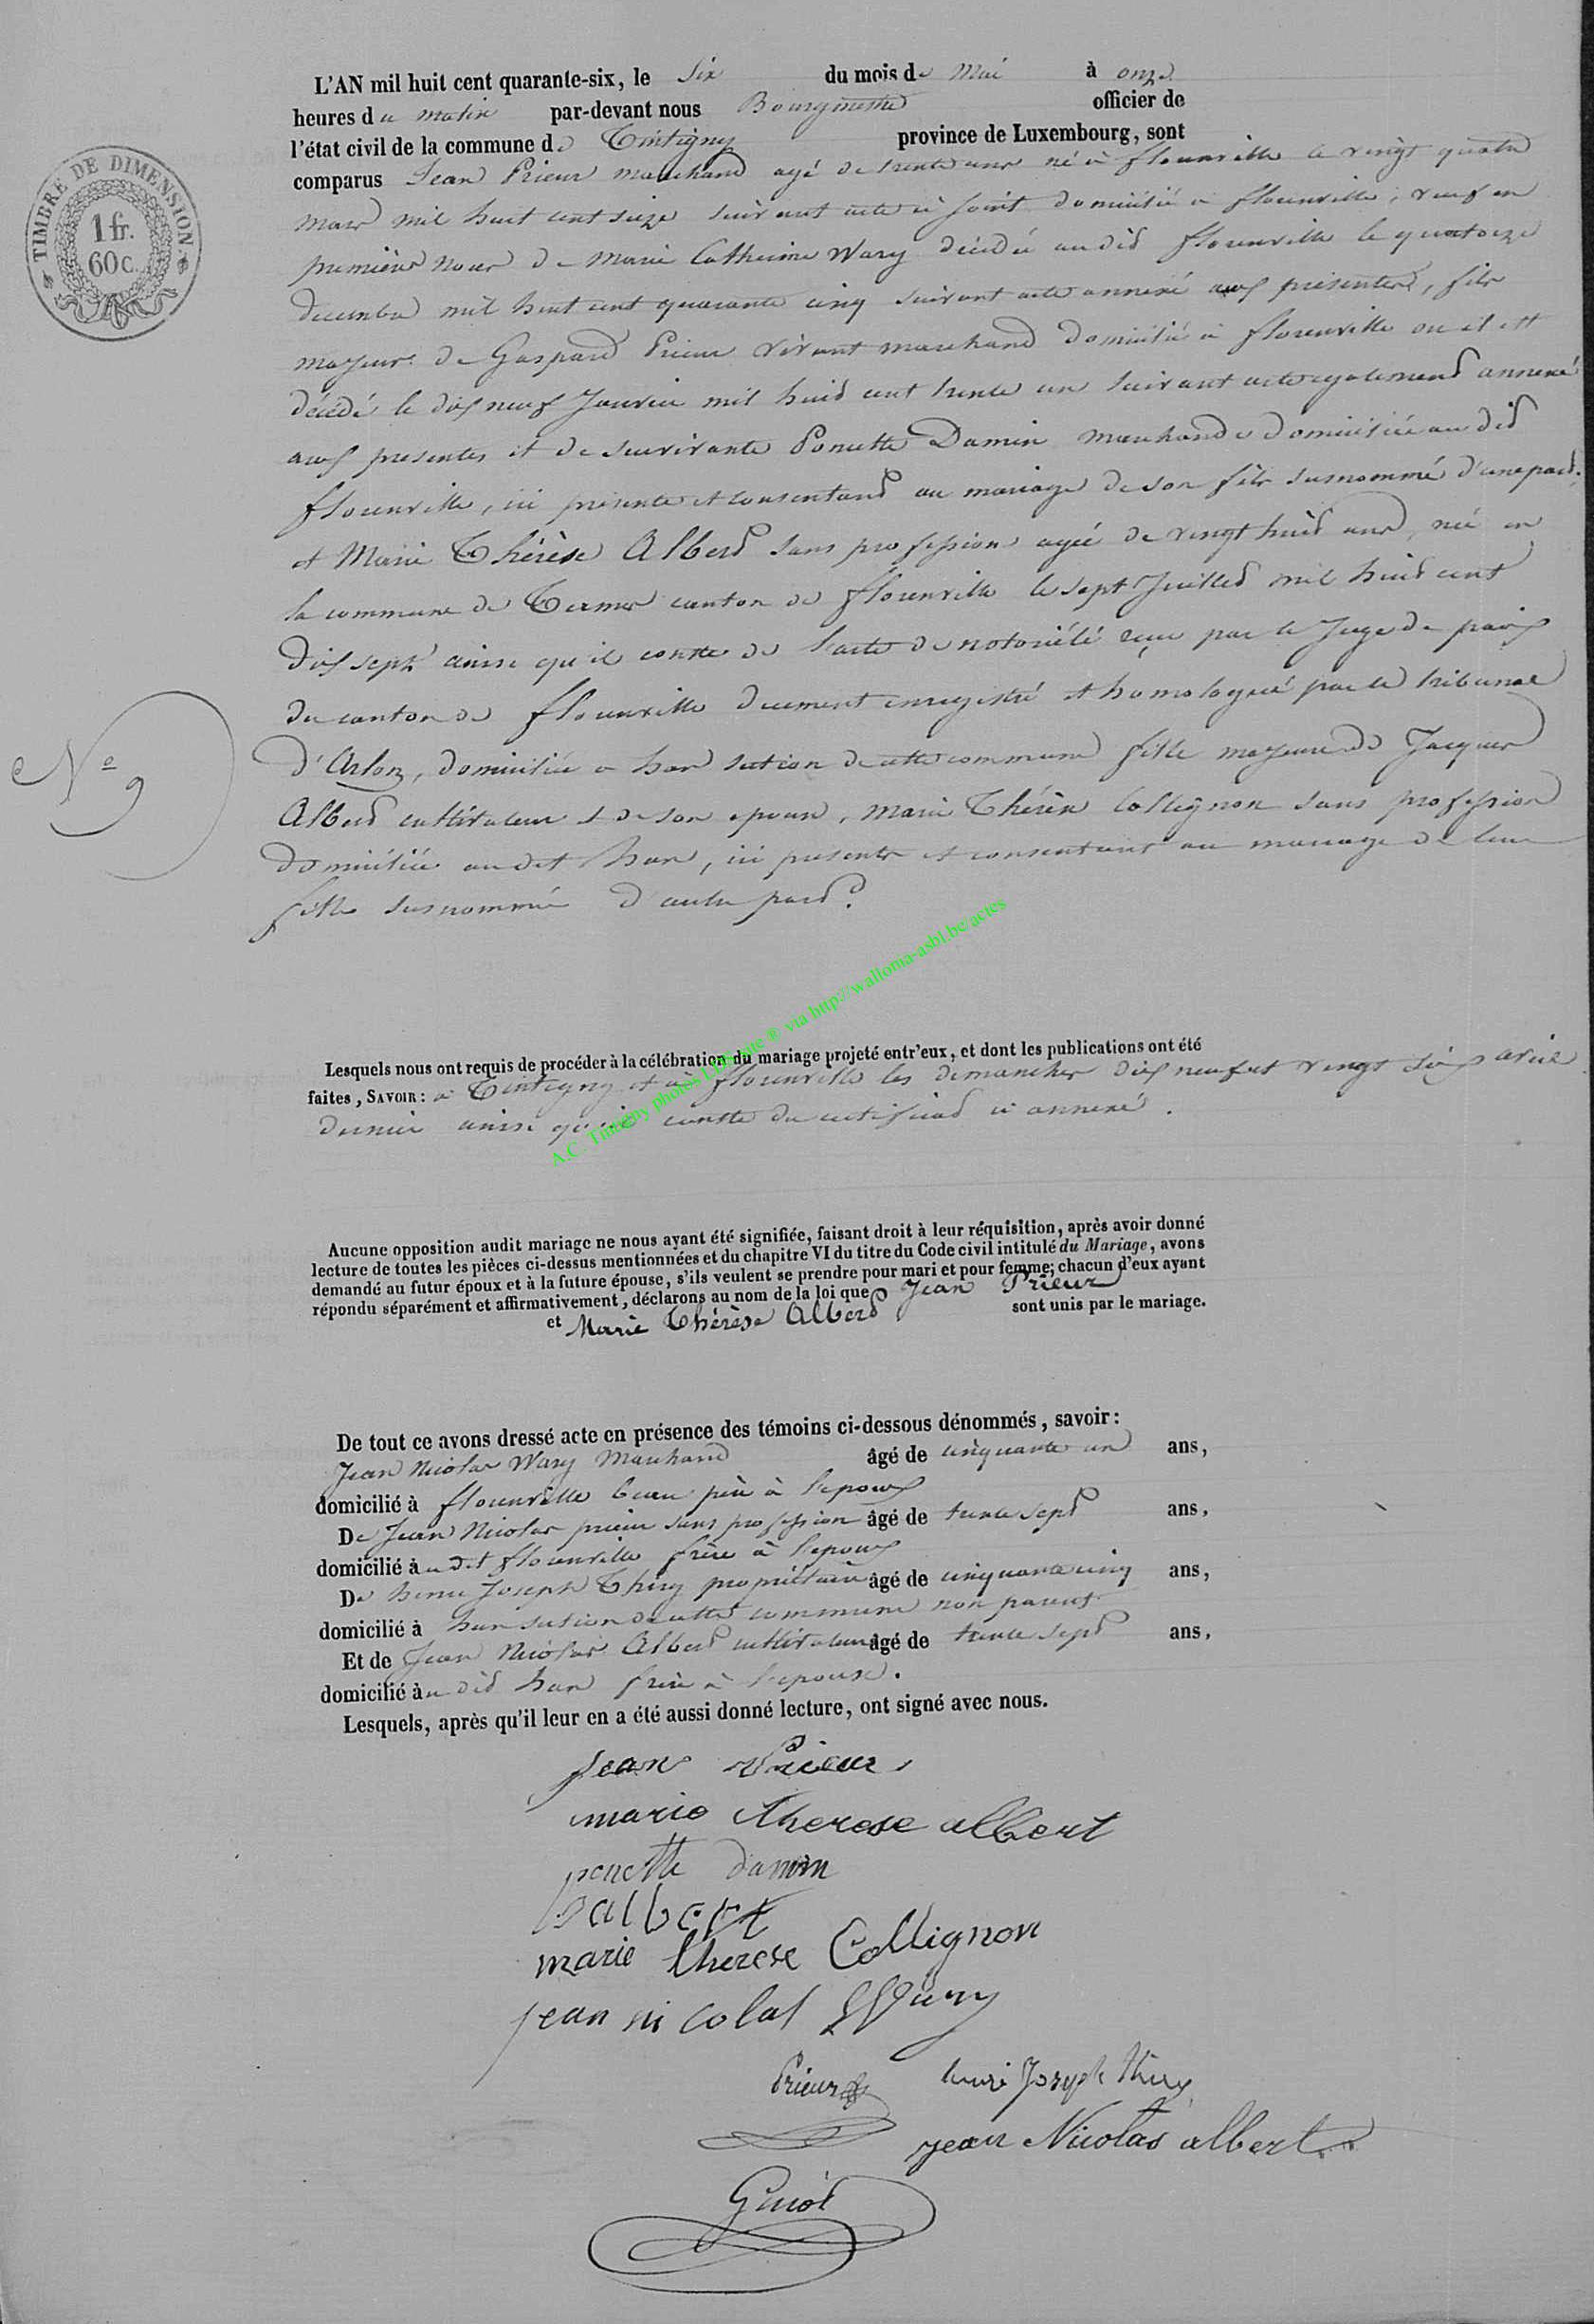 L'AN mil huit cent quarante-six, le six du mois de Mai à onze
heures du matin par-devant nous Bourgmestre officier de
l'état civil de la commune de Tintigny province de Luxembourg, sont
comparus Jean Prieur marchand agé de trente ans né à florenville le vingt quatre
mars mil huit cent seize suivant acte ci joint domicilié a florenville, veuf en
premières noces de Marie Catherine Wary décédée audit florenville le quatorze
decembre mil huit cent quarante cinq suivant acte annexé aux présentes, fils
majeur de Gaspard Prieur vivant marchand domicilié à florenville ou il est
décédé le dix neuf Janvier mil huit cent trente un suivant acte egalement annexé
aux presentes et de survivante Ponette Damin marchande domiciliée au dit
florenville, ici présente et consentant au mariage de son fils susnommé d'une part.
et Marie Thérèse Albert sans profession agée de vingt huit ans, née en
la commune de Termes canton de florenville le sept Juillet mil huit cent
dix sept ainsi qu'il conste de l'acte de notoriété reçu par le Juge de paix
du canton de florenville duement enregistré et homologué par le tribunal
d'Arlon, domiciliée a han section de cette commune fille majeure de Jacques
Albert cultivateur et de son epouse, Marie Thérèse Collignon sans profession
domiciliés audit han, ici presents et consentants au mariage de leur
fille susnommée d'autre part.
TIMBRE DE DIMENSION
1 fr.
60 c.
No 9
Lesquels nous ont requis de procéder à la célébration du mariage projeté entr'eux, et dont les publications ont été
faites, SAVOIR: à Tintigny et à florenville les dimanches dix neuf et vingt six avril
dernier ainsi qu'il conste du certificat ci annexé.
A.C. Tintigny photos via http://walloma-asbl.be/actes
Aucune opposition audit mariage ne nous ayant été signifiée, faisant droit à leur réquisition, après avoir donné
lecture de toutes les pièces ci-dessus mentionnées et du chapitre VI du titre du Code civil intitulé du Mariage, avons
demandé au futur époux et à la future épouse, s'ils veulent se prendre pour mari et pour femme; chacun d'eux ayant
répondu séparément et affirmativement, déclarons au nom de la loi que Jean Prieur
et Marie Thérèse Albert sont unis par le mariage.
De tout ce avons dressé acte en présence des témoins ci-dessous dénommés, savoir:
Jean Nicolas Wary Marchand âgé de cinquante un ans,
domicilié à florenville beau père à l'epoux
De Jean Nicolas prieur sans profession âgé de trente sept ans,
domicilié à u dit florenville frère à l'epoux
De henri Joseph Thiry propriétaire âgé de cinquante cinq ans,
domicilié à han section de cette commune non parent
Et de Jean Nicolas Albert cultivateur âgé de trente sept ans,
domicilié à u dit han frère à l'epouse.
Lesquels, après qu'il leur en a été aussi donné lecture, ont signé avec nous.
jean Prieur
marie therese albert
ponette damin
j albert
marie therese Collignon
jean nicolas Wary
Prieur henri Joseph thiry
jean Nicolas albert
Guiot